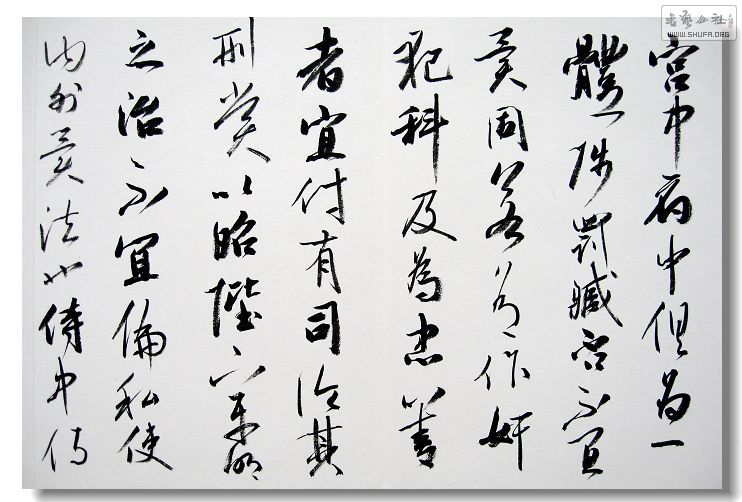 宮中府中俱為一
體陟罰臧否不宜
異同若有作奸
犯科及為忠善
者宜付有司論其
刑賞以昭陛下平明
之治不宜偏私使
內外異法也侍中侍
書藝公社
WWW.SHUFA.ORG